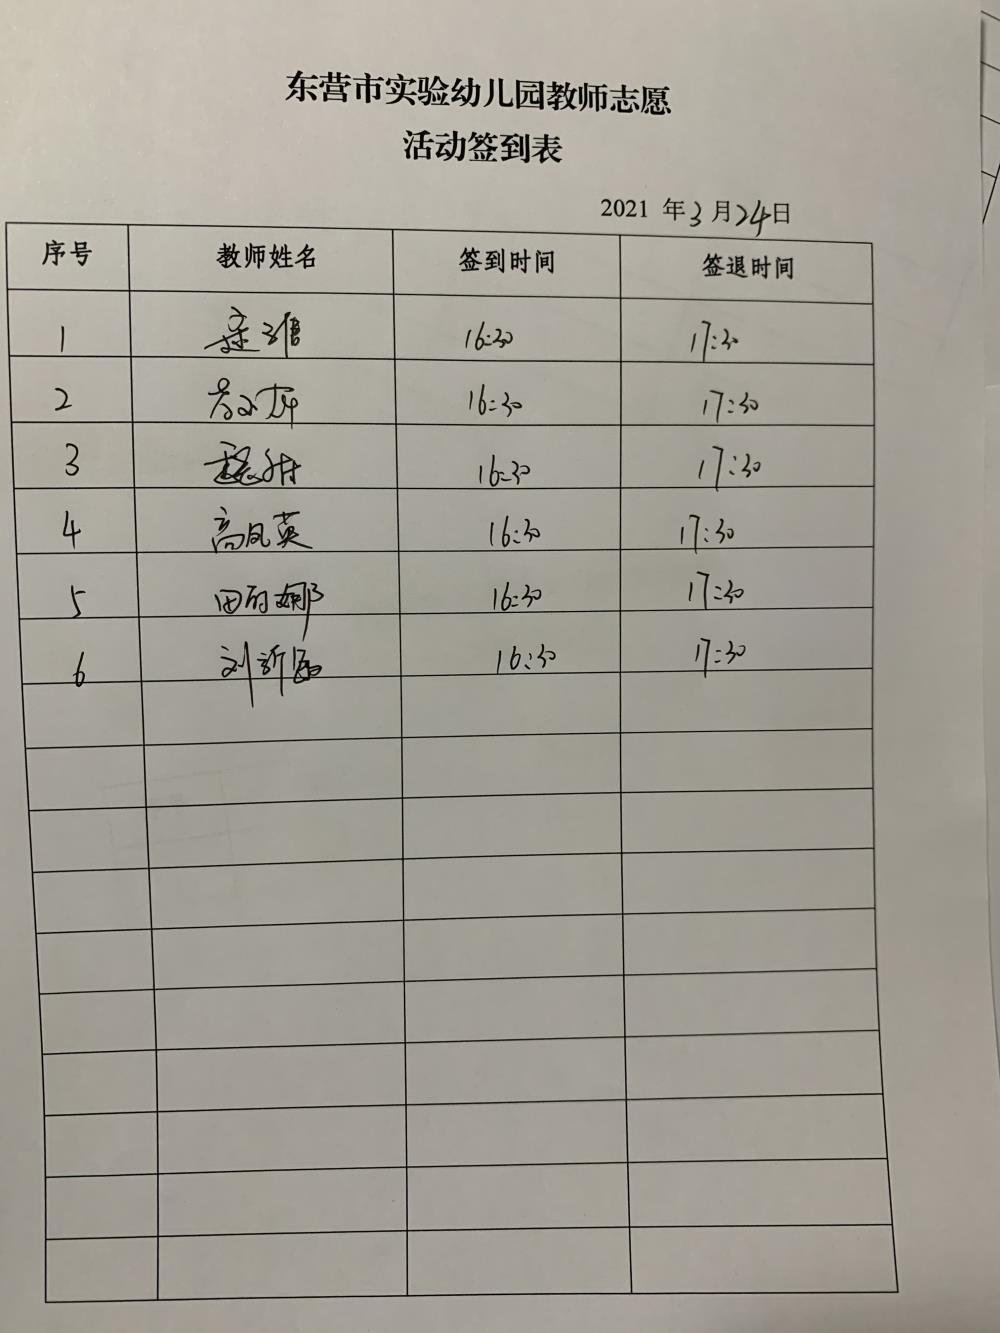 东营市实验幼儿园教师志愿
活动签到表
2021 年3月24日
序号 教师姓名 签到时间 签退时间
1 16:30 17:30
2 16:30 17:30
3 16:30 17:30
4 高凤英 16:30 17:30
5 16:30 17:30
6 16:30 17:30